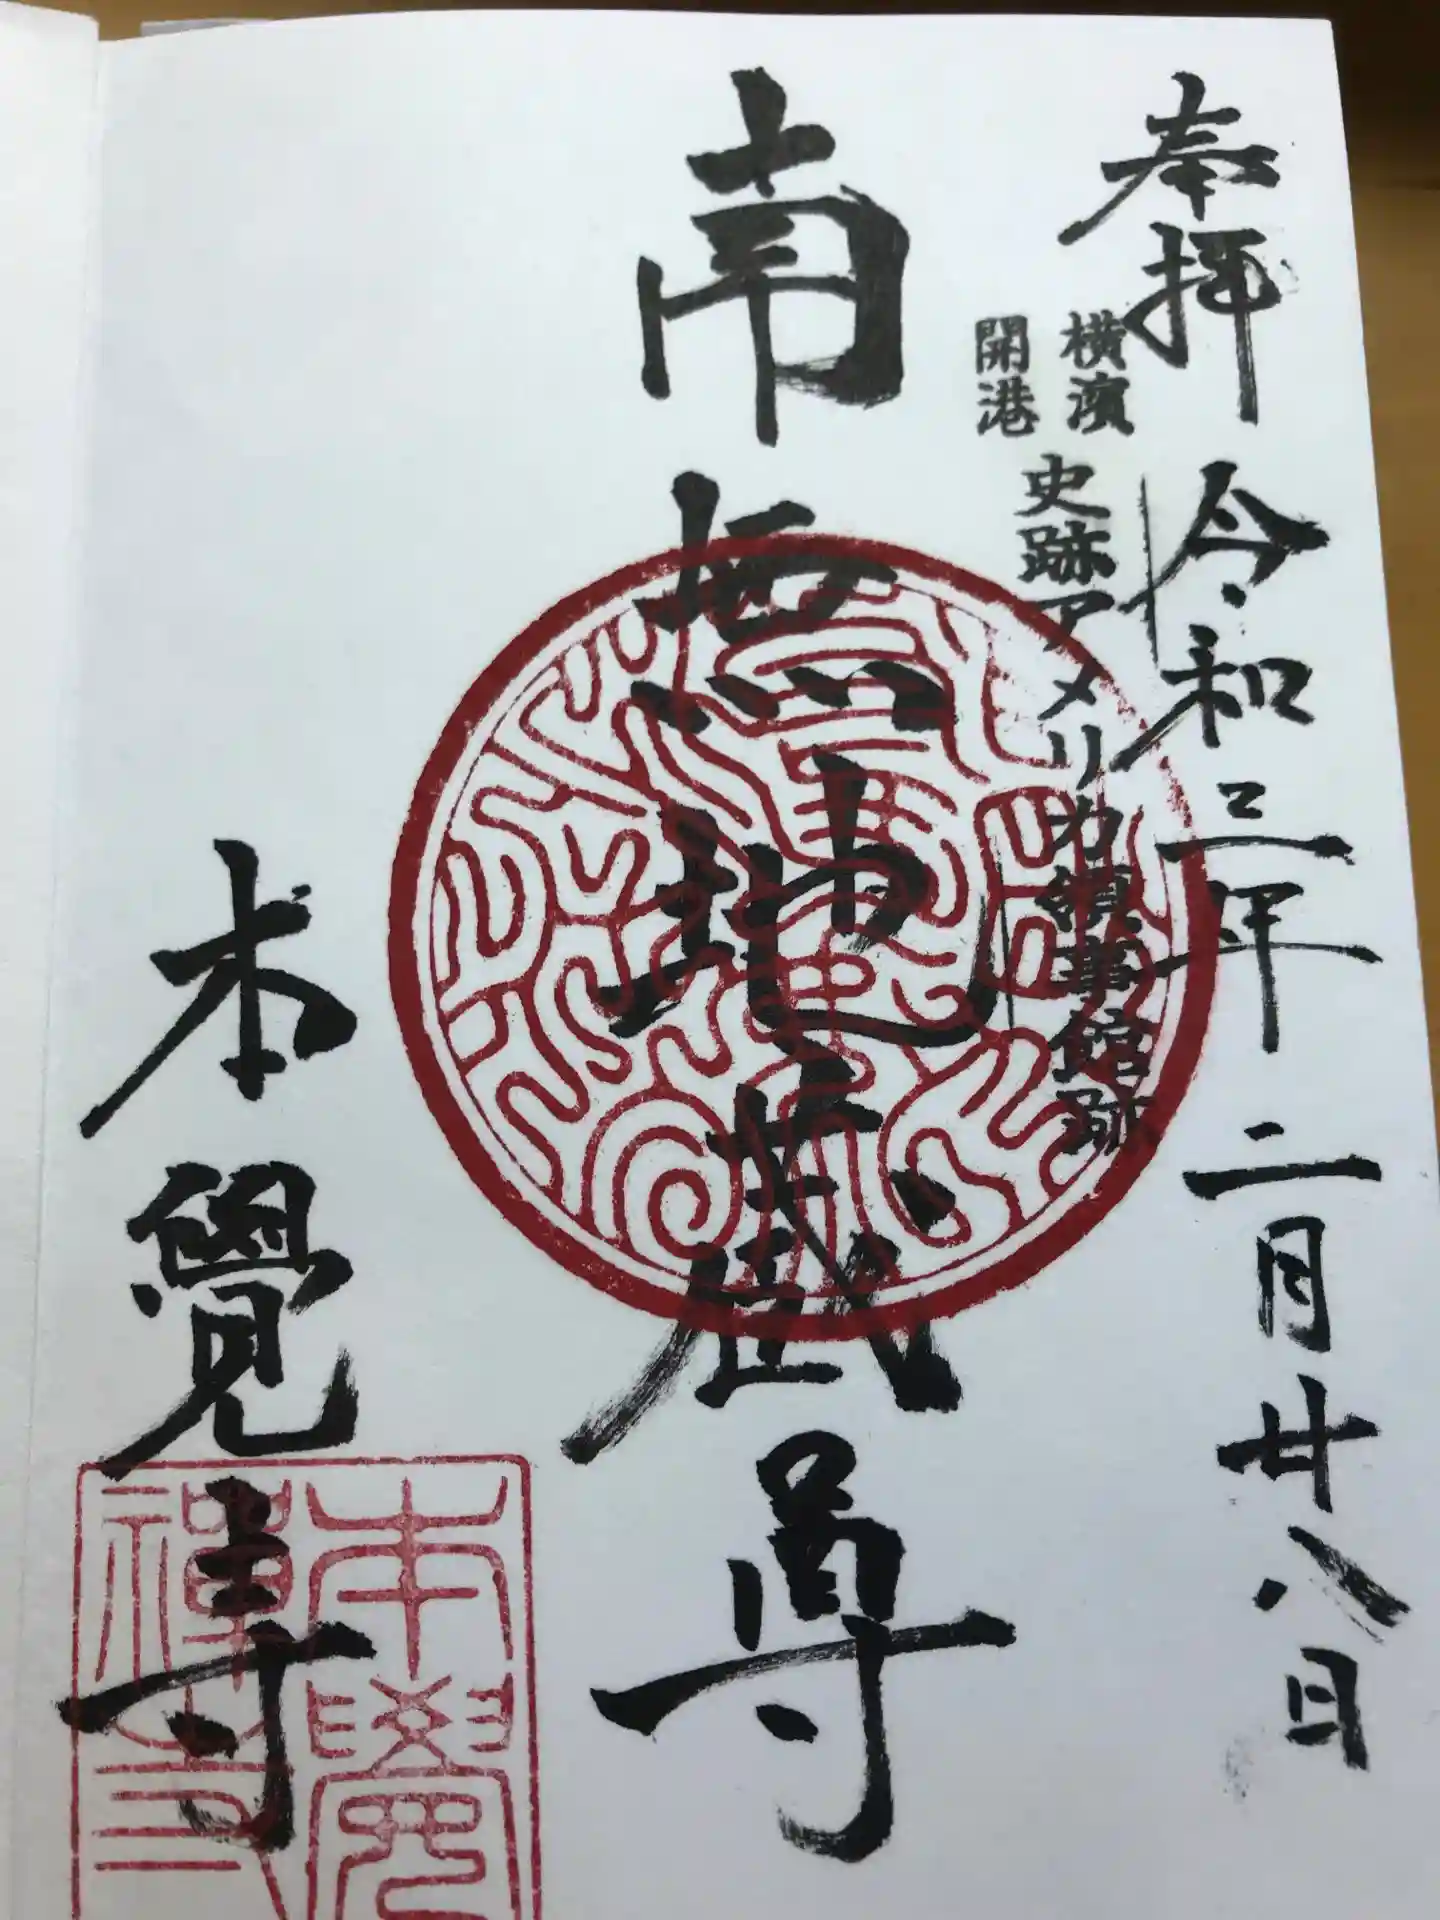 奉拝 令和三年二月廿八日
横濱
開港
史跡アメリカ領事館跡
南無地蔵尊
本覺寺
本覺
禅寺